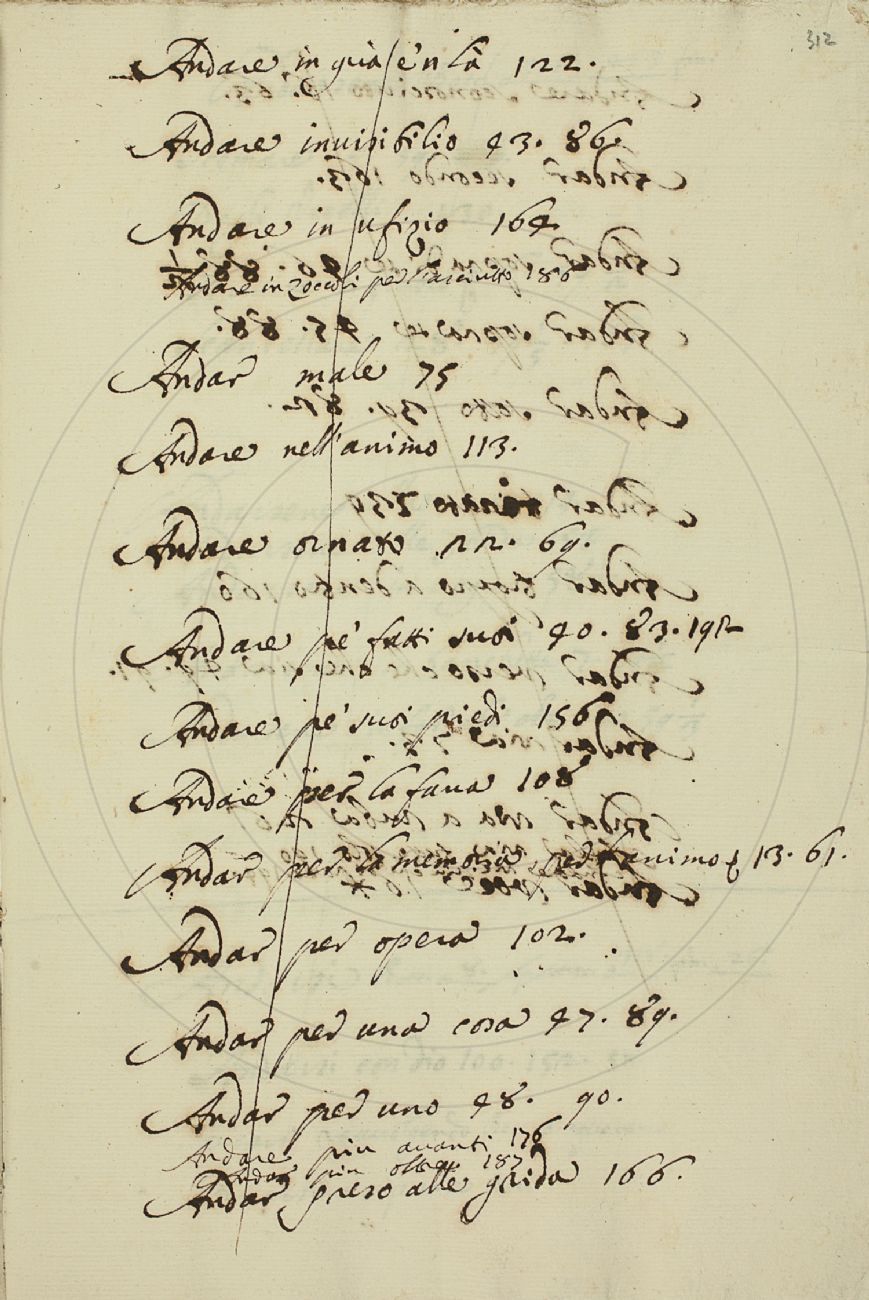 312
Andare in qua e 'n là 122.
Andare invisibilio 43. 86.
Andare in ufizio 164
Andare in Zoccoli per l'asciutto 186
Andar male 75
Andare nell'animo 113.
Andare ornato 22. 69.
Andare pe' fatti suoi 40. 83. 192
Andare pe' suoi piedi 156
Andare per la fama 108
Andar per la memoria, per l'animo 13. 61.
Andar per opera 102.
Andar per una cosa 47. 89.
Andar per uno 48. 90.
Andare piu avanti 176
Andar piu oltre 187
Andar preso alle grida 166.